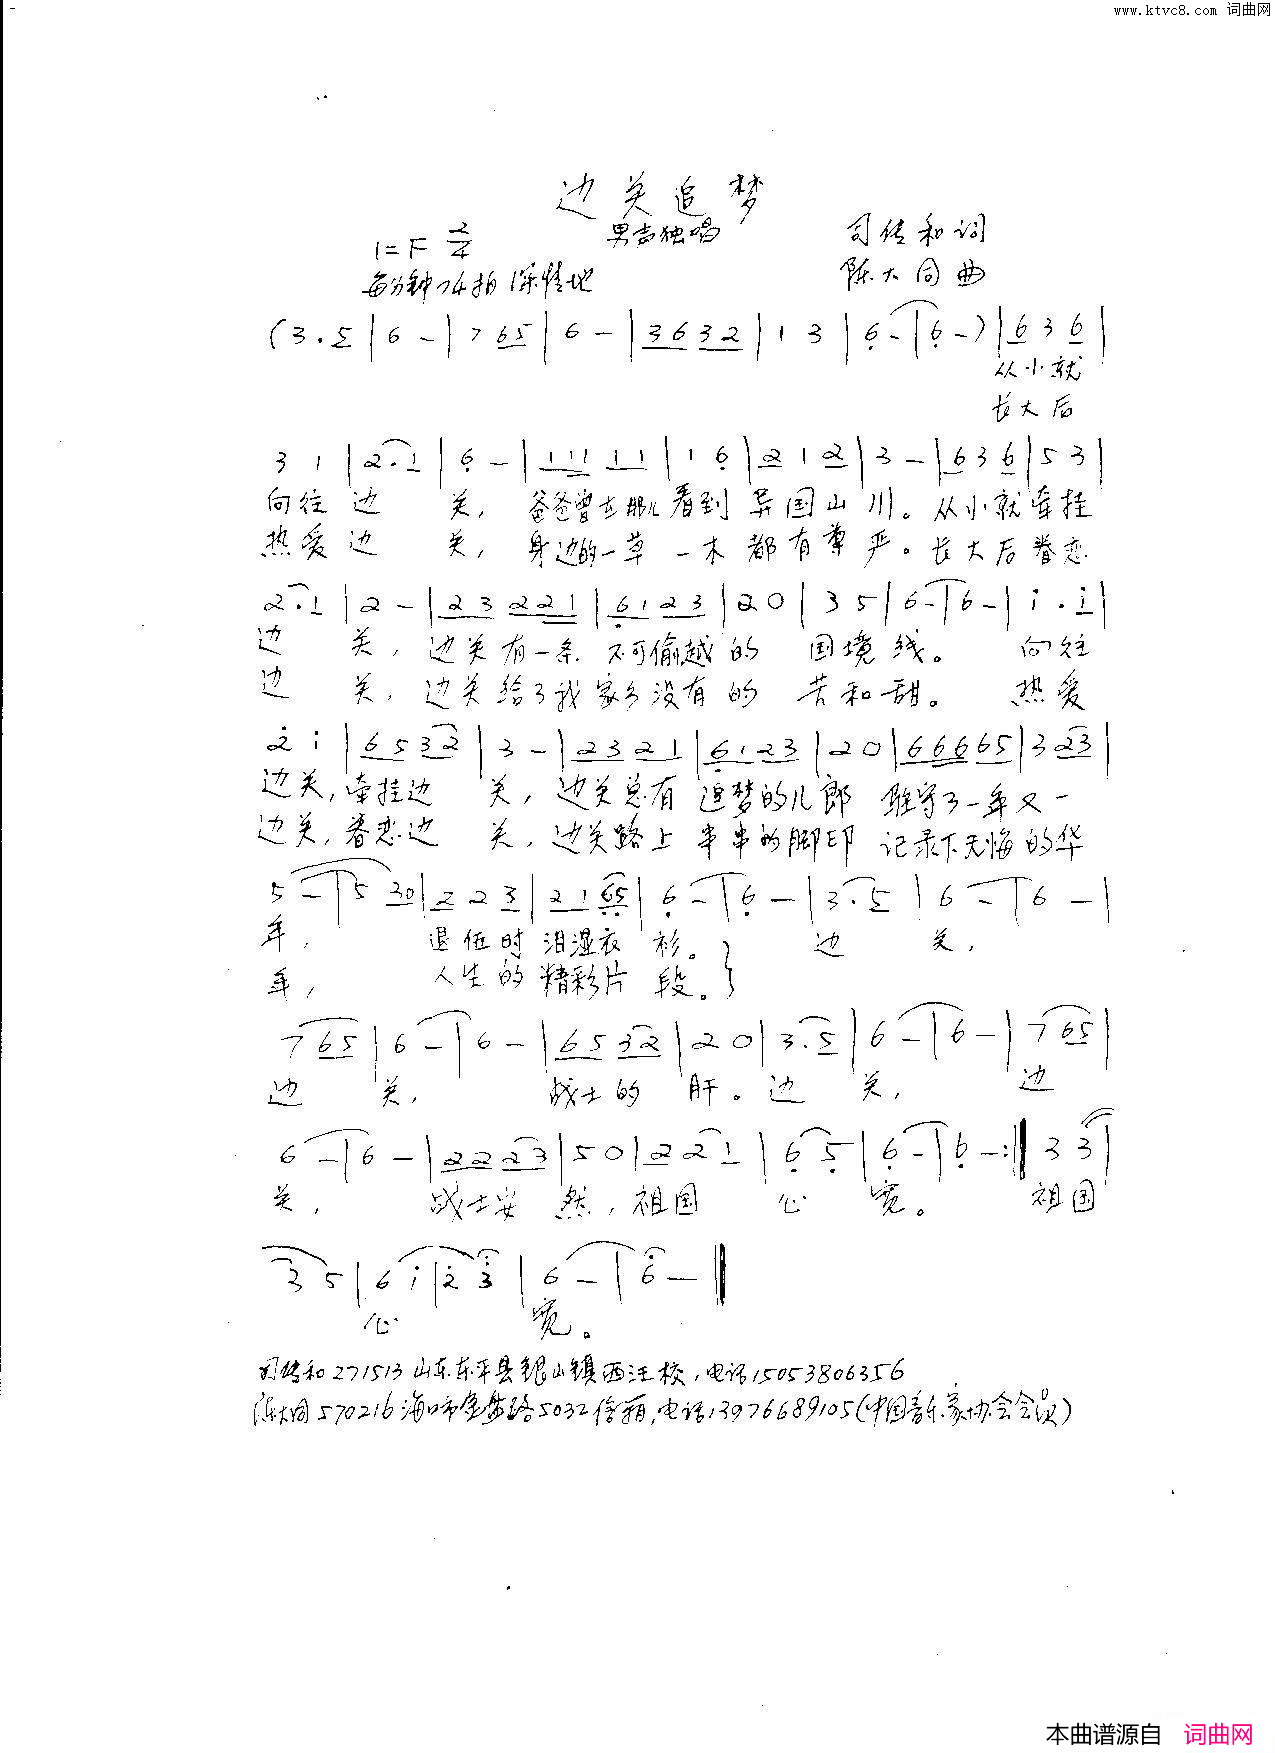 www.ktvc8.com 词曲网
边关追梦
1=F 2/4 男声独唱 司传和词
每分钟74拍 深情地 陈大同曲
(3.5|6-|765|6-|3632|13|6-|6-)|636|
从小就
长大后
31|2.1|6-|11111|16|212|3-|636|53|
向往边关,爸爸曾在那儿看到异国山川。从小就牵挂
热爱边关,身边的一草一木都有尊严。长大后眷恋
2.1|2-|23221|6123|20|35|6-|6-|i.i|
边关,边关有一条不可偷越的国境线。向往
边关,边关给了我家乡没有的苦和甜。热爱
2i|6532|3-|2321|6123|20|66665|323|
边关,牵挂边关,边关总有追梦的儿郎 驻守了一年又一
边关,眷恋边关,边关路上串串的脚印 记录下无悔的华
5-|530|223|2165|6-|6-|3.5|6-|6-|
年,退伍时泪湿衣衫。边关,
年,人生的精彩片段。
765|6-|6-|6532|20|3.5|6-|6-|765|
边关,战士的肝。边关,边
6-|6-|2223|50|221|65|6-|6-:‖33|
关,战士安然,祖国心宽。祖国
35|6i|23|6-|6-‖
心宽。
司传和271513山东东平县银山镇西汪校,电话15053806356
陈大同570216海口市金盘路5032信箱,电话13976689105(中国音乐家协会会员)
本曲谱源自 词曲网